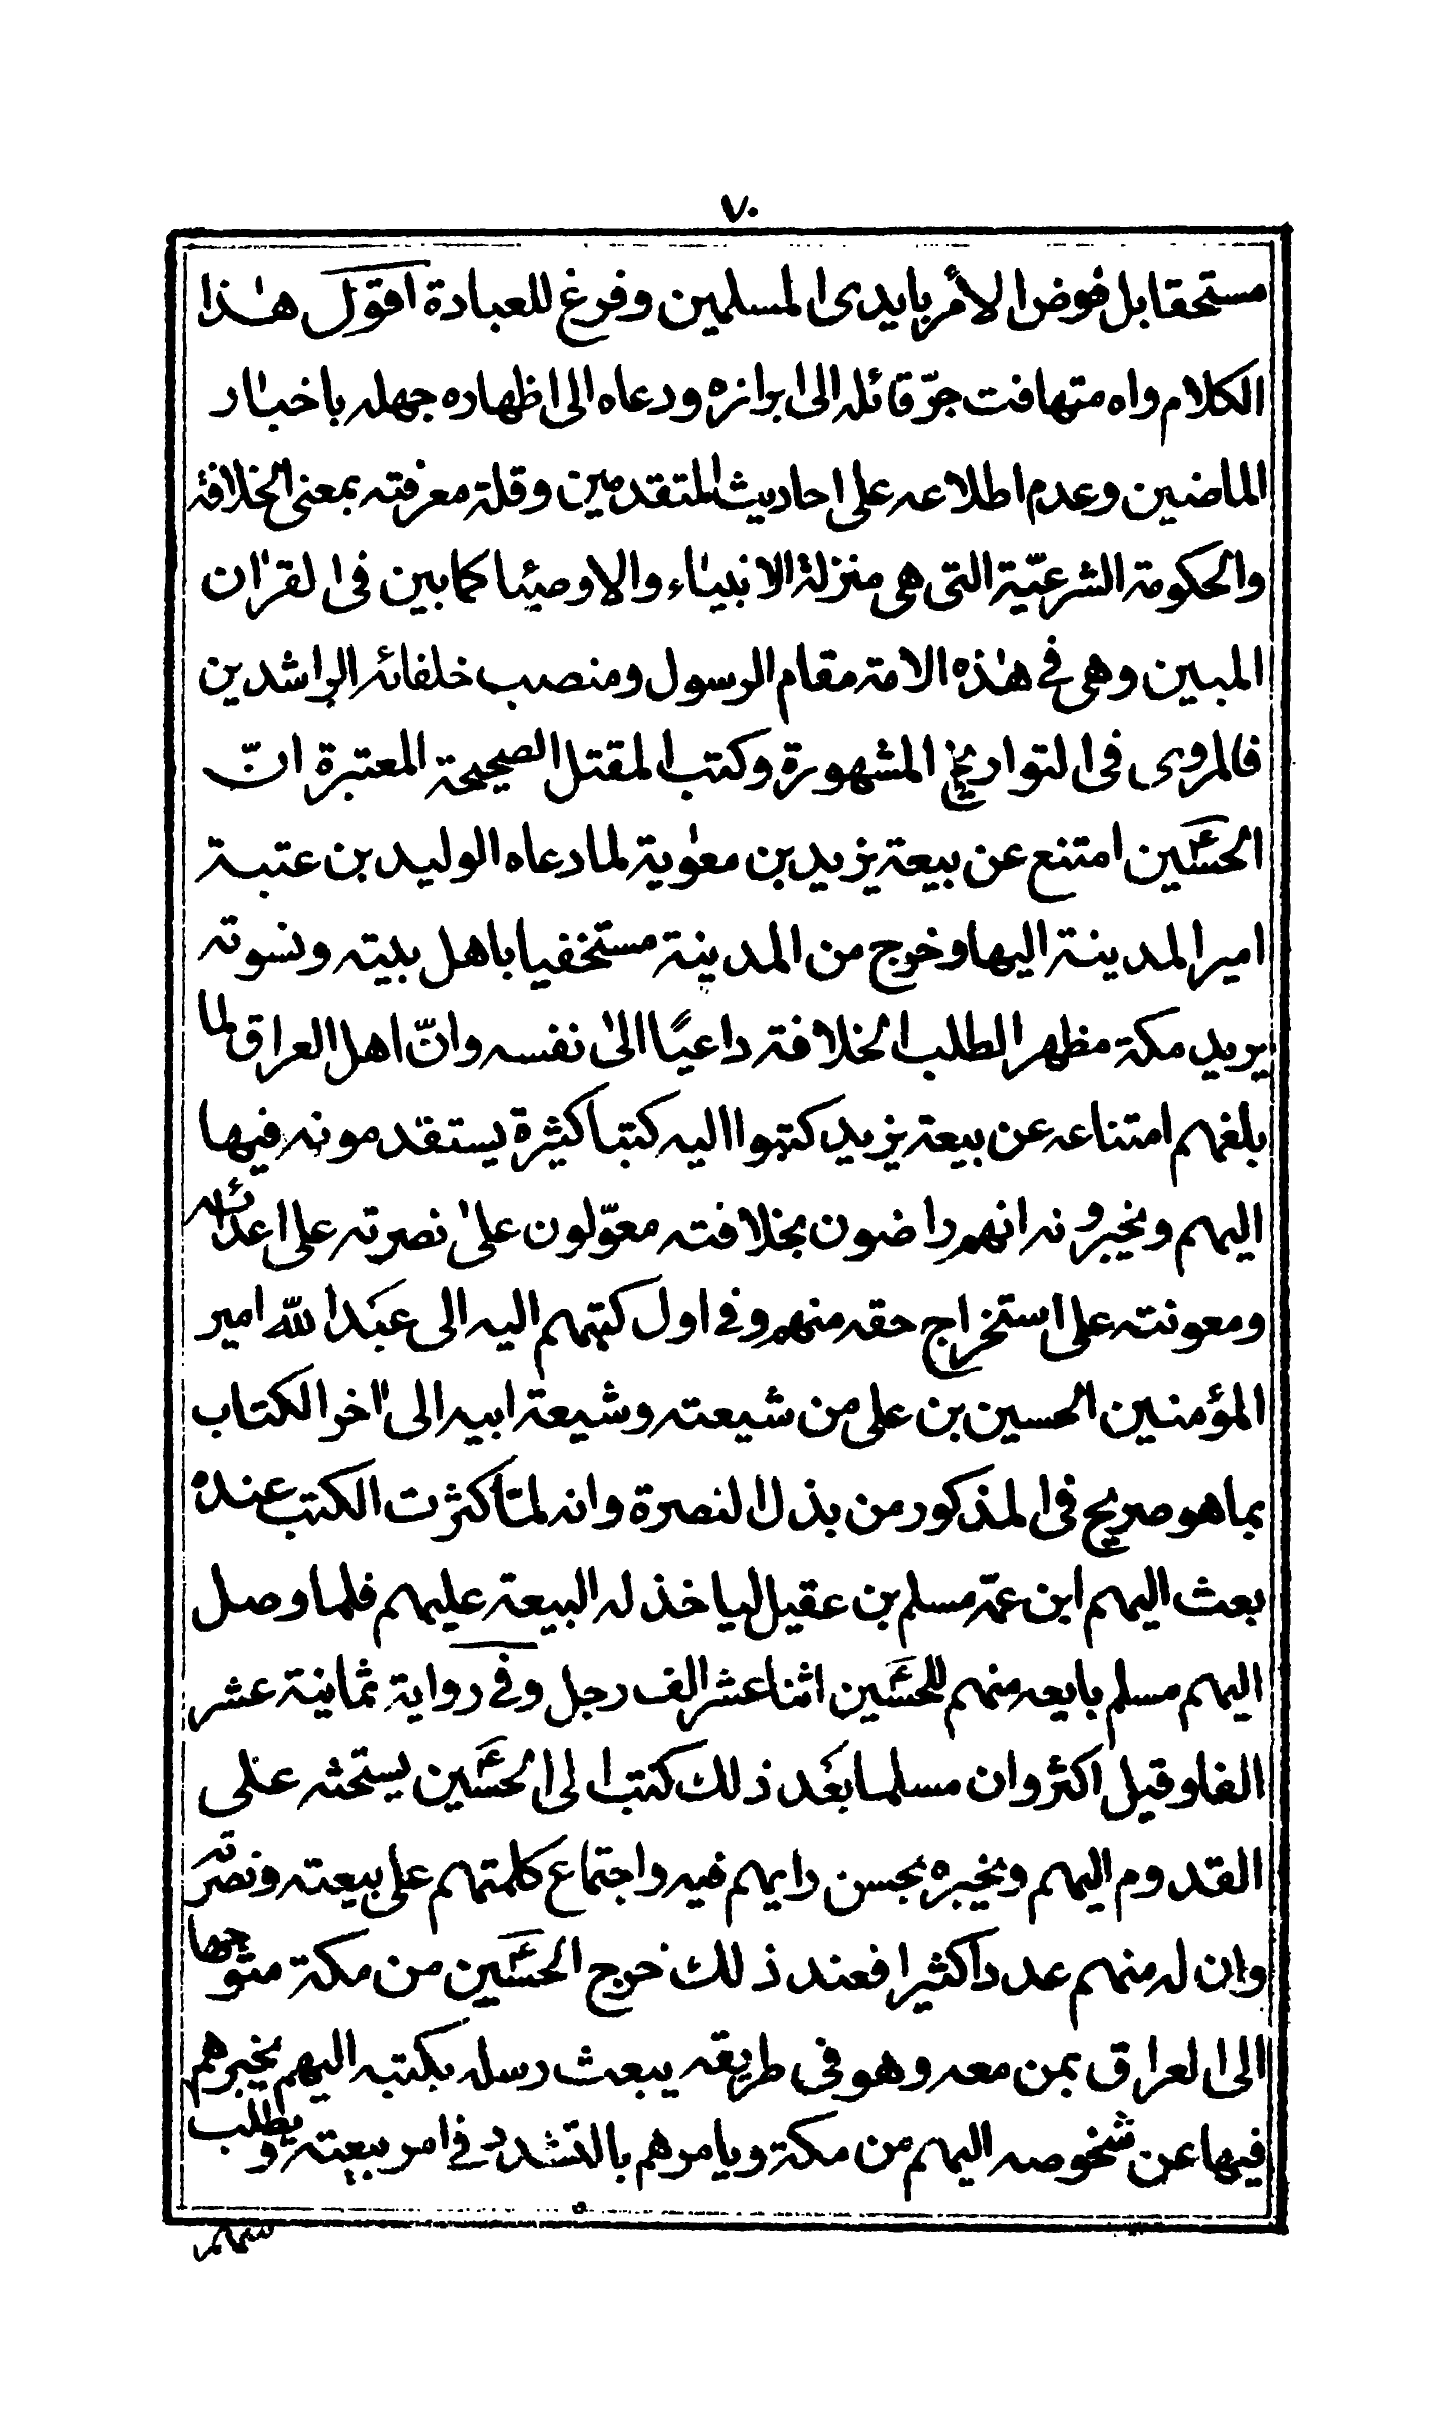 ٧٠
مستحقا بل فوض الأمر بايدى المسلمين وفرغ للعبادة اقول هٰذا
الكلام واه متهافت جرّ قائله الى ابرازه ودعاه الى اظهاره جهله باخبار
الماضين وعدم اطلاعه على احاديث المتقدمين وقلة معرفته بمعنى الخلافة
والحكومة الشرعيّة التى هى منزلة الانبياء والاوصيٓا كما بين فى القراٰن
المبين وهى فى هٰذه الامة مقام الرسول ومنصب خلفائه الراشدين
فالمروى فى التواريخ المشهورة وكتب المقتل الصحيحة المعتبرة انّ
الحسينؑ امتنع عن بيعة يزيد بن معٰوية لما دعاه الوليد بن عتبة
امير المدينة اليها وخرج من المدينة مستخفيا باهل بيته ونسوته
يريد مكة مظهرا لطلب الخلافة داعيًا الىٰ نفسه وانّ اهل العراق لما
بلغهم امتناعه عن بيعة يزيد كتبوا اليه كتبا كثيرة يستقدمونه فيها
اليهم ويخبرونه انهم راضون بخلافته معوّلون علىٰ نصرته على اعدائه
ومعونته على استخراج حقه منهم وفى اول كتبهم اليه الى عبد الله امير
المؤمنين الحسين بن على من شيعته وشيعة ابيه الى اٰخر الكتاب
بما هو صريح فى المذكور من بذل النصرة وانه لمّا كثرت الكتب عنده
بعث اليهم ابن عمّه مسلم بن عقيل لياخذ له البيعة عليهم فلما وصل
اليهم مسلم بايعه منهم للحسينؑ اثنا عشر الف رجل وفى رواية ثمانية عشر
الفا وقيل اكثر وان مسلما بعد ذلك كتب الى الحسينؑ يستحثه على
القدوم اليهم ويخبره بحسن رايهم فيه واجتماع كلمتهم على بيعته ونصرته
وان له منهم عددا كثيرا فعند ذلك خرج الحسينؑ من مكة متوجها
الى العراق بمن معه وهو فى طريقه يبعث رسله بكتبه اليهم يخبرهم
فيها عن شخوصه اليهم من مكة ويامرهم بالتشدد فى امر بيعته ويطلب